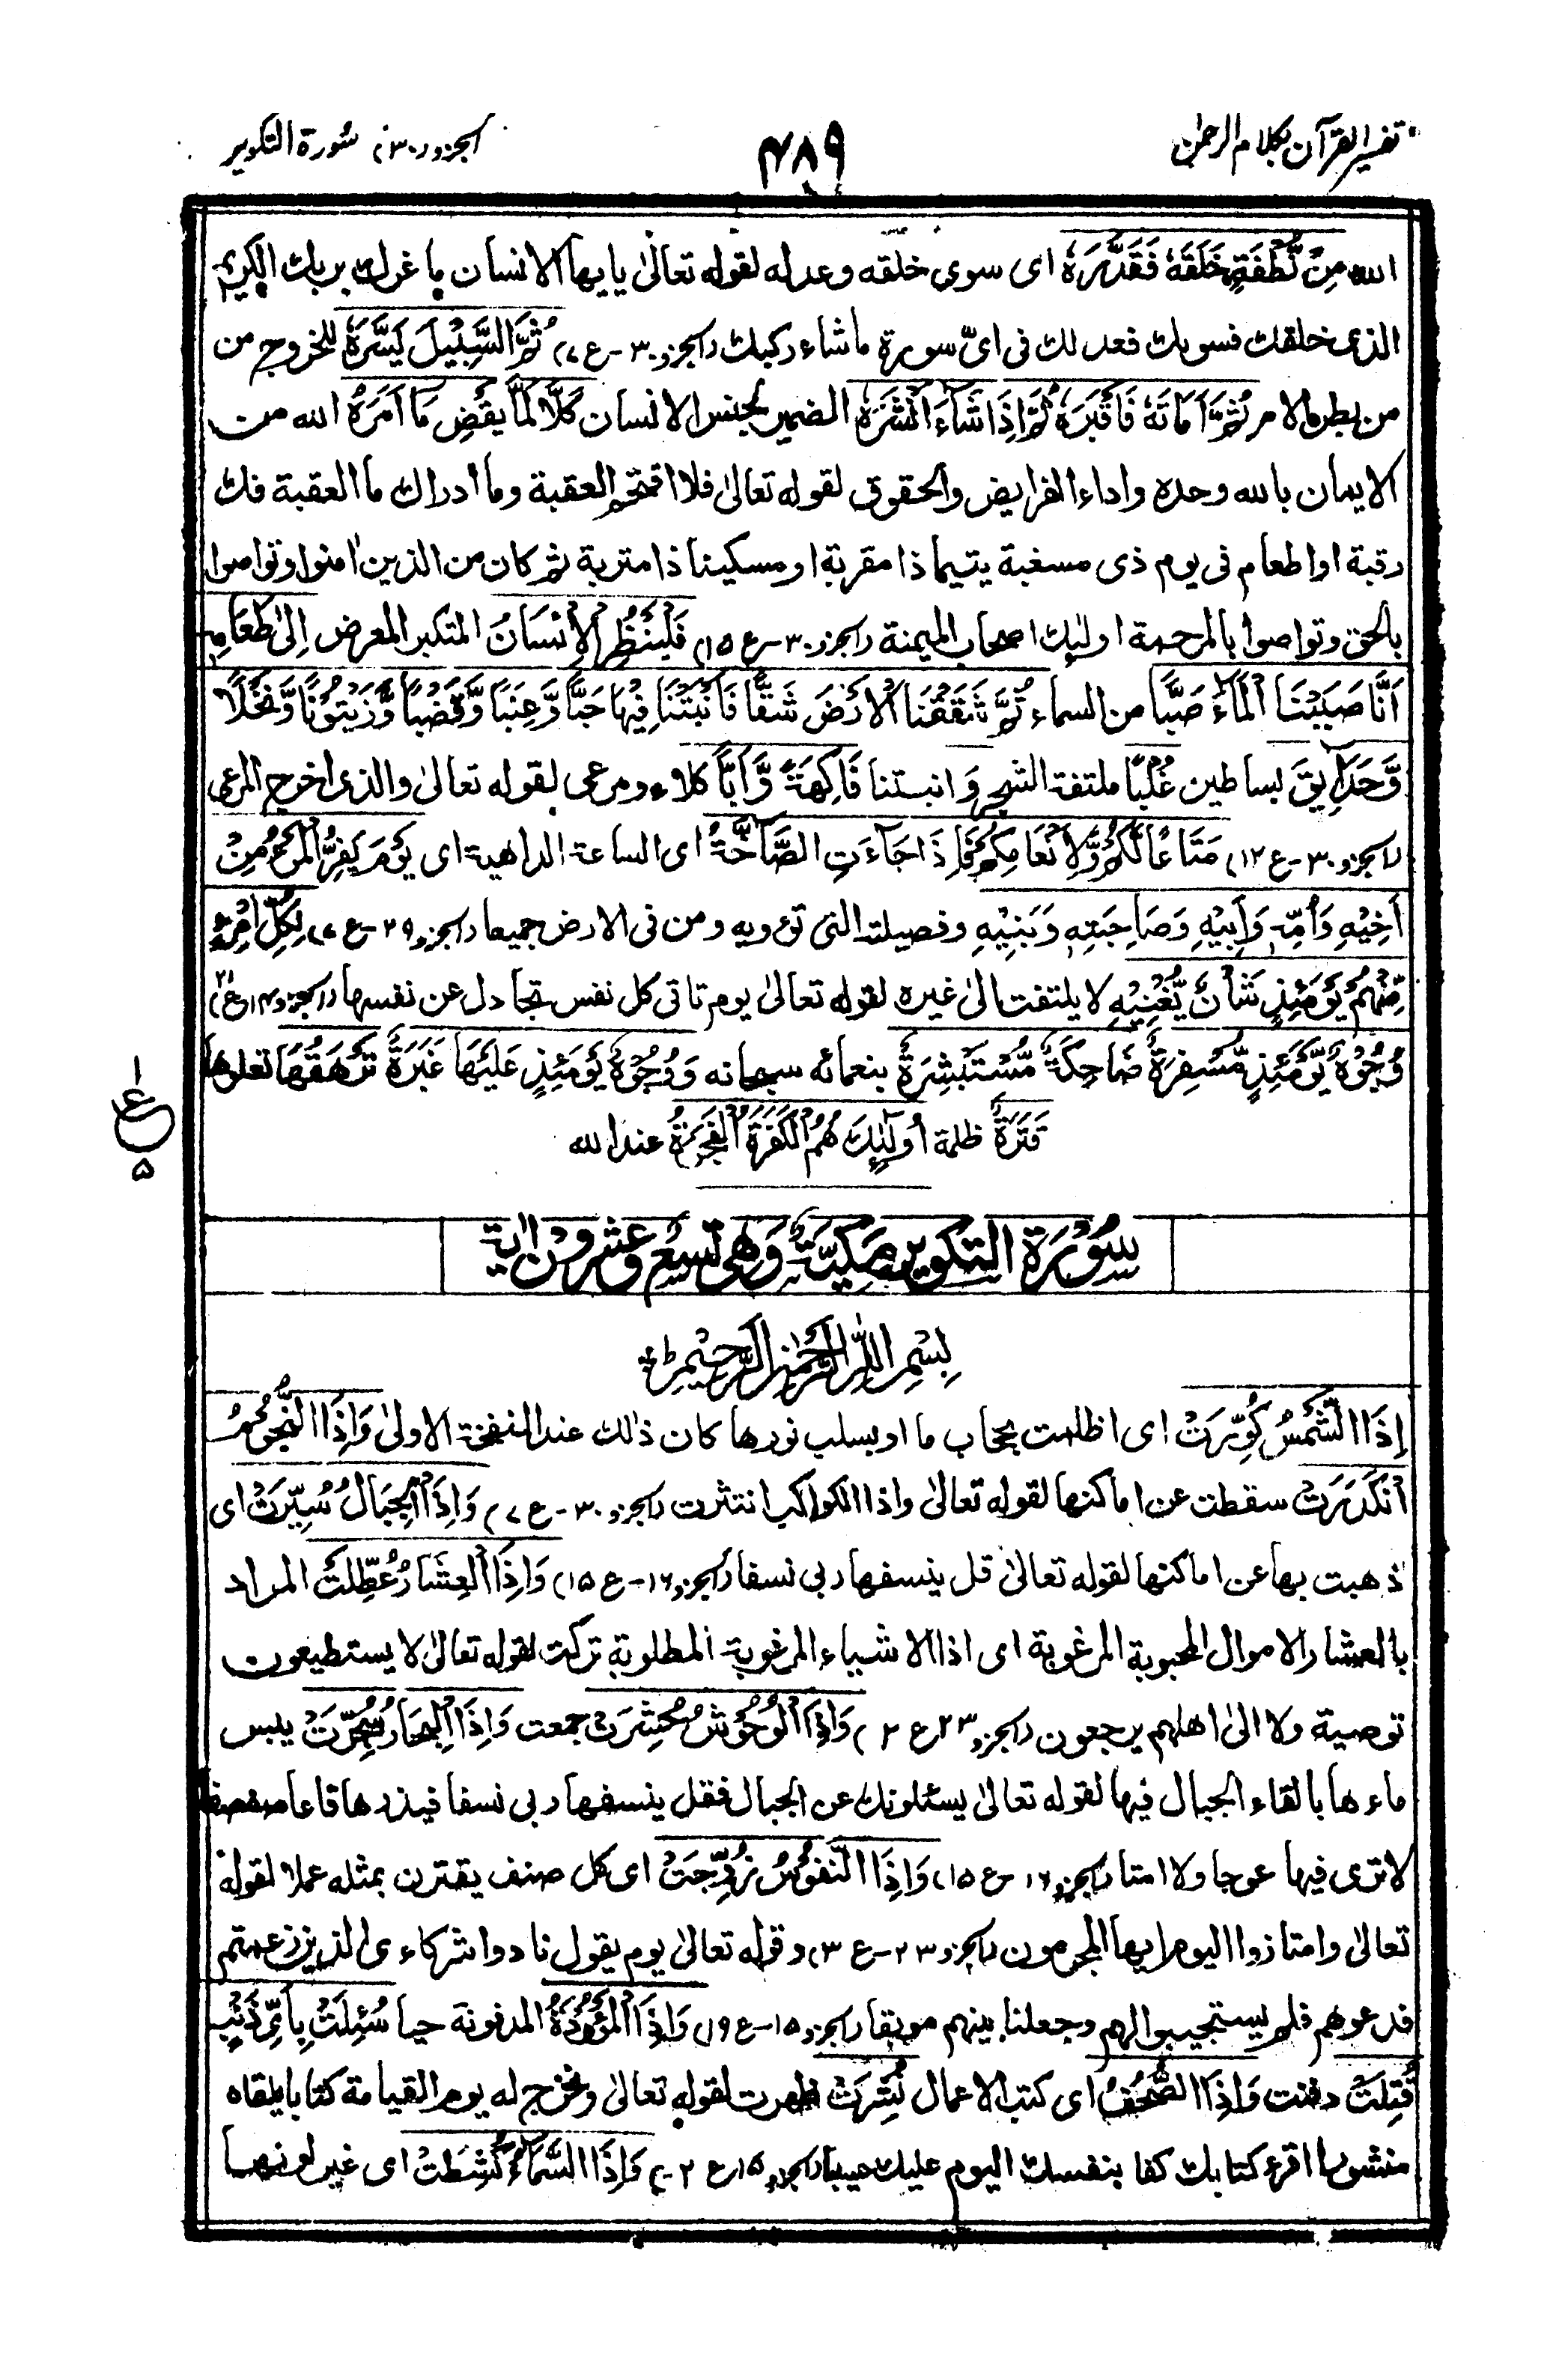 تفسير القرآن بكلام الرحمٰن
٤٨٩
الجزو (٣٠) سورة التكوير
الله مِنْ نُّطْفَةٍ خَلَقَهٗ فَقَدَّرَهٗ اى سوى خلقه وعدله لقوله تعالىٰ يا يها الانسان ما غرك بربك الكريم
الذى خلقك فسوىك فعدلك فى اىّ سورة ما شاء ركبك (الجزو ٣٠-ع ٧) ثُمَّ السَّبِيْلَ يَسَّرَهٗ للخروج من
من بطن الامر ثُمَّ اَمَاتَهٗ فَاَقْبَرَهٗ ثُمَّ اِذَا شَآءَ اَنْشَرَهٗ الضمير لجنس الانسان كَلَّا لَمَّا يَقْضِ مَآ اَمَرَهٗ الله من
الايمان بالله وحده واداء الفرايض والحقوق لقوله تعالىٰ فلا اقتحم العقبة وما ادراك ما العقبة فك
رقبة او اطعام فى يوم ذى مسغبة يتيما ذا مقربة او مسكينا ذا متربة ثم كان من الذين اٰمنوا وتواصوا
بالحق وتواصوا بالمرحمة اولٰىِٕك اصحاب الميمنة (الجزو ٣٠-ع ١٥) فَلْيَنْظُرِ الْاِنْسَانُ المتكبر المعرض اِلىٰ طَعَامِهٖ
اَنَّا صَبَبْنَا الْمَآءَ صَبًّا من السماء ثُمَّ شَقَقْنَا الْاَرْضَ شَقًّا فَاَنْبَتْنَا فِيْهَا حَبًّا وَّعِنَبًا وَّقَضْبًا وَّزَيْتُوْنًا وَّنَخْلًا
وَّحَدَآىِٕقَ بساطين غُلْبًا ملتفة الشجر وَ انبتنا فَاكِهَةً وَّاَبًّا كلاء ومرعى لقوله تعالىٰ والذى اخرج المرعى
(الجزو ٣٠-ع ١٢) مَتَاعًا لَّكُمْ وَلِاَنْعَامِكُمْ فَاِذَا جَآءَتِ الصَّآخَّةُ اى الساعة الداهية اى يَوْمَ يَفِرُّ الْمَرْءُ مِنْ
اَخِيْهِ وَاُمِّهٖ وَاَبِيْهِ وَصَاحِبَتِهٖ وَبَنِيْهِ وفصيلته التى تؤويه ومن فى الارض جميعا (الجزو ٢٩-ع ٧) لِكُلِّ امْرِئٍ
مِّنْهُمْ يَوْمَئِذٍ شَاْنٌ يُّغْنِيْهِ لا يلتفت الىٰ غيره لقوله تعالىٰ يوم تاتى كل نفس تجادل عن نفسها (الجزو ١٤-ع ٢١)
وُجُوْهٌ يَّوْمَئِذٍ مُّسْفِرَةٌ ضَاحِكَةٌ مُّسْتَبْشِرَةٌ بنعمائه سبحانه وَوُجُوْهٌ يَوْمَئِذٍ عَلَيْهَا غَبَرَةٌ تَرْهَقُهَا تعلوها
قَتَرَةٌ ظلمة اُولٰٓىِٕكَ هُمُ الْكَفَرَةُ الْفَجَرَةُ عند الله
١
ع
٥
سُوْرَةُ التكوير مَكِيَّةٌ وَهِىَ تِسْعٌ وعشرون اٰية
بِسْمِ اللّٰهِ الرَّحْمٰنِ الرَّحِيْمِ
اِذَا الشَّمْسُ كُوِّرَتْ اى اظلمت بحجاب ما او بسلب نورها كان ذٰلك عند النفخة الاولىٰ وَاِذَا النُّجُوْمُ
انْكَدَرَتْ سقطت عن اماكنها لقوله تعالىٰ واذا الكواكب انتثرت (الجزو ٣٠-ع ٧) وَاِذَا الْجِبَالُ سُيِّرَتْ اى
ذهبت بها عن اماكنها لقوله تعالىٰ قل ينسفها ربى نسفا (الجزو ١٦-ع ١٥) وَاِذَا الْعِشَارُ عُطِّلَتْ المراد
بالعشار الاموال المحبوبة المرغوبة اى اذا الاشياء المرغوبة المطلوبة تركت لقوله تعالىٰ لا يستطيعون
توصية ولا الىٰ اهلهم يرجعون (الجزو ٢٣ ع ٢) وَاِذَا الْوُحُوْشُ حُشِرَتْ جمعت وَاِذَا الْبِحَارُ سُجِّرَتْ يبس
ماءها بالقاء الجبال فيها لقوله تعالىٰ يسئلونك عن الجبال فقل ينسفها ربى نسفا فيذرها قاعا صفصفا
لا ترى فيها عوجا ولا امتا (الجزو ١٦-ع ١٥) وَاِذَا النُّفُوْسُ زُوِّجَتْ اى كل صنف يقترن بمثله عملا لقوله
تعالىٰ وامتازوا اليوم ايها المجرمون (الجزو ٢٣-ع ٣) وقوله تعالىٰ يوم يقول نادوا شركاءى الذين زعمتم
فدعوهم فلم يستجيبوا لهم وجعلنا بينهم موبقا (الجزو ١٥-ع ١٩) وَاِذَا الْمَوْءُدَةُ المدفونة حيا سُئِلَتْ بِاَىِّ ذَنْۢبٍ
قُتِلَتْ دفنت وَاِذَا الصُّحُفُ اى كتب الاعمال نُشِرَتْ ظهرت لقوله تعالىٰ ونخرج له يوم القيامة كتابا يلقاه
منشورا اقرء كتابك كفا بنفسك اليوم عليك حسيبا (الجزو ١٥ ع ٢) وَاِذَا السَّمَآءُ كُشِطَتْ اى غير لونها